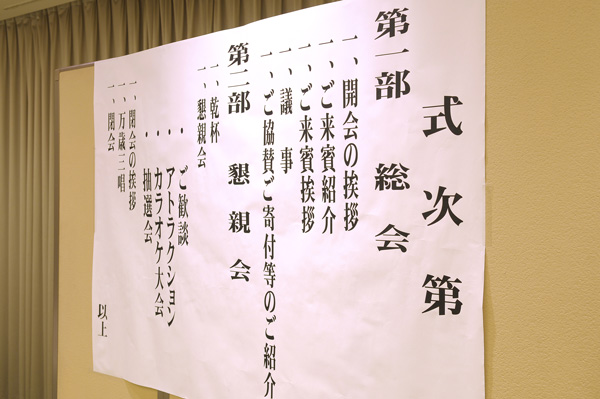 式次第
第一部 総会
一、開会の挨拶
一、ご来賓紹介
一、ご来賓挨拶
一、議事
一、ご協賛ご寄付等のご紹介
第二部 懇親会
一、乾杯
一、懇親会
・ご歓談
・アトラクション
・カラオケ大会
・抽選会
一、閉会の挨拶
一、万歳三唱
一、閉会
以上